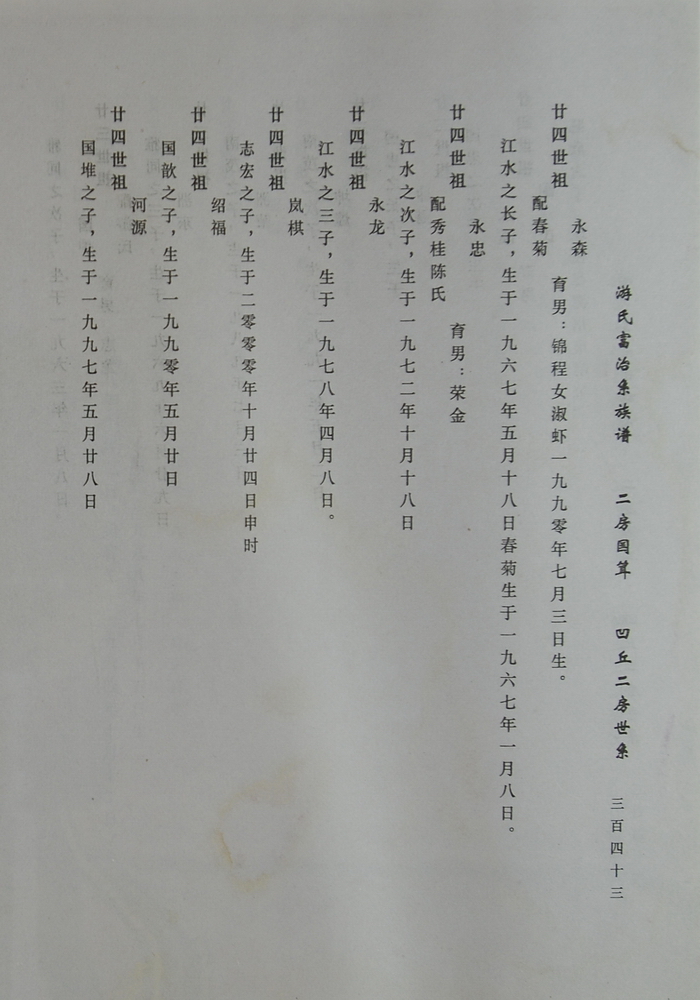 游氏富治系族谱 二房国茸 凹丘二房世系 三百四十三
永森
廿四世祖 配春菊 育男：锦程女淑虾一九九零年七月三日生。
江水之长子，生于一九六七年五月十八日春菊生于一九六七年一月八日。
永忠
廿四世祖 配秀桂陈氏 育男：荣金
江水之次子，生于一九七二年十月十八日
永龙
廿四世祖
江水之三子，生于一九七八年四月八日。
岚棋
廿四世祖
志宏之子，生于二零零零年十月廿四日申时
绍福
廿四世祖
国歆之子，生于一九九零年五月廿日
河源
廿四世祖
国堆之子，生于一九九七年五月廿八日